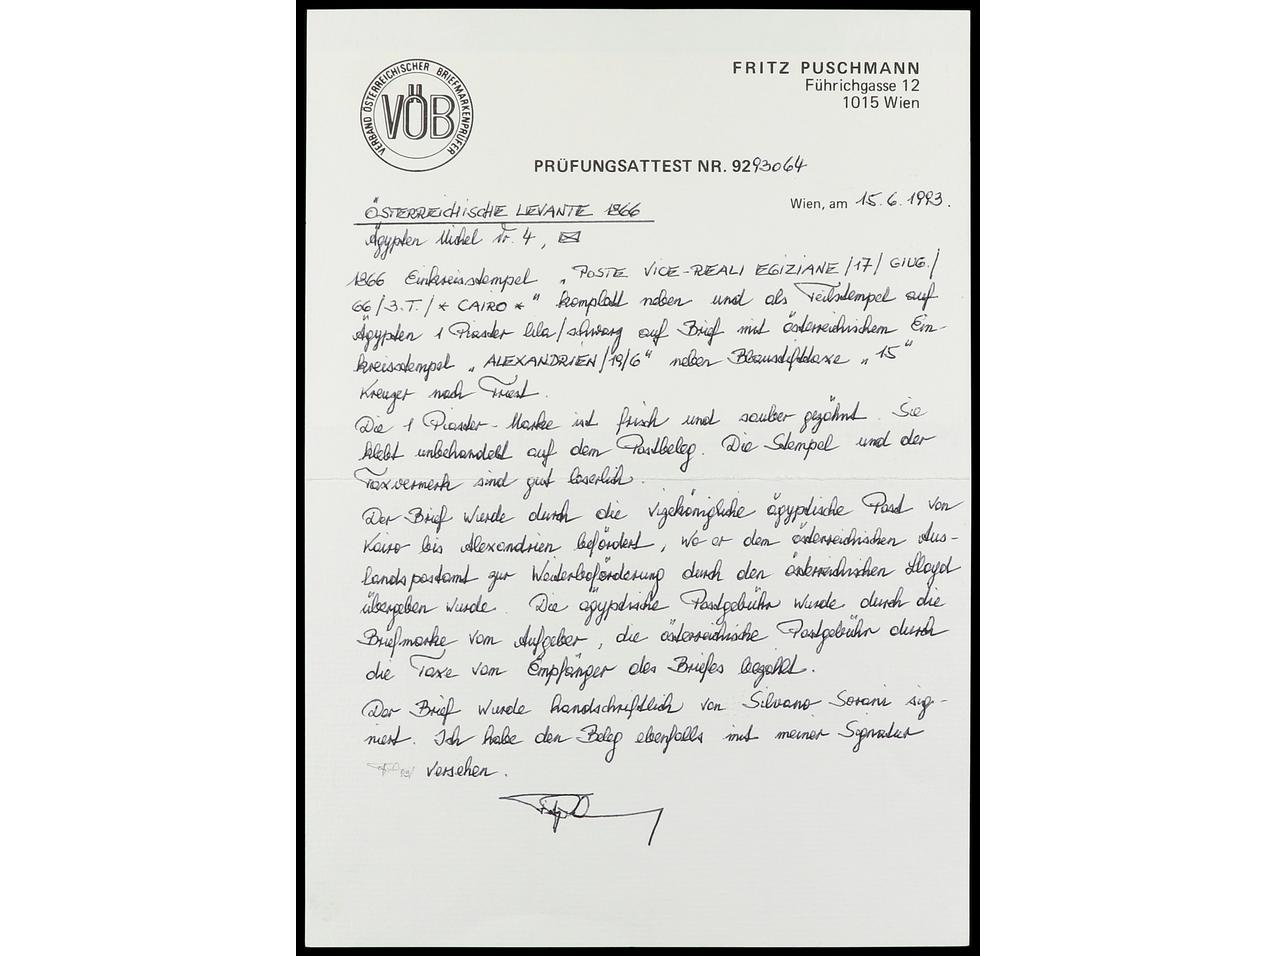 VERBAND ÖSTERREICHISCHER BRIEFMARKENPRÜFER
VÖB
FRITZ PUSCHMANN
Führichgasse 12
1015 Wien
PRÜFUNGSATTEST NR. 9293064
Wien, am 15.6.1993.
ÖSTERREICHISCHE LEVANTE 1866
Ägypten Michel Nr. 4, ✉
1866 Einkreisstempel „POSTE VICE-REALI EGIZIANE/17/GIUG./
66/3.T./* CAIRO *" komplett neben und als Teilstempel auf
Ägypten 1 Piaster lila/schwarz auf Brief mit österreichischem Ein-
kreisstempel „ALEXANDRIEN/19/6" neben Blaustifttaxe „15"
Kreuzer nach Triest.
Die 1 Piaster-Marke ist frisch und sauber gezähnt. Sie
klebt unbehandelt auf dem Postbeleg. Die Stempel und der
Taxvermerk sind gut leserlich.
Der Brief wurde durch die vizekönigliche ägyptische Post von
Kairo bis Alexandrien befördert, wo er dem österreichischen Aus-
landspostamt zur Weiterbeförderung durch den österreichischen Lloyd
übergeben wurde. Die ägyptische Postgebühr wurde durch die
Briefmarke vom Aufgeber, die österreichische Postgebühr durch
die Taxe vom Empfänger des Briefes bezahlt.
Der Brief wurde handschriftlich von Silvano Sorani sig-
niert. Ich habe den Beleg ebenfalls mit meiner Signatur
versehen.